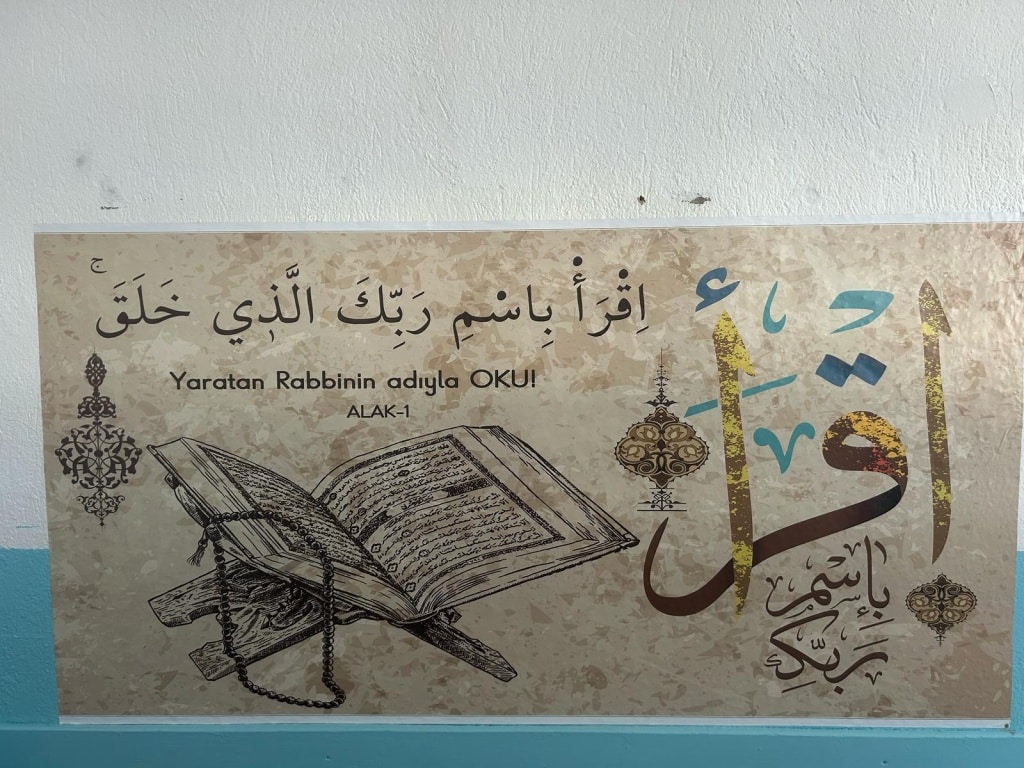 اِقْرَأْ بِاسْمِ رَبِّكَ الَّذٖي خَلَقَۚ
Yaratan Rabbinin adıyla OKU!
ALAK-1
اقْرَأ
بِاِسْمِ
رَبِّكَ